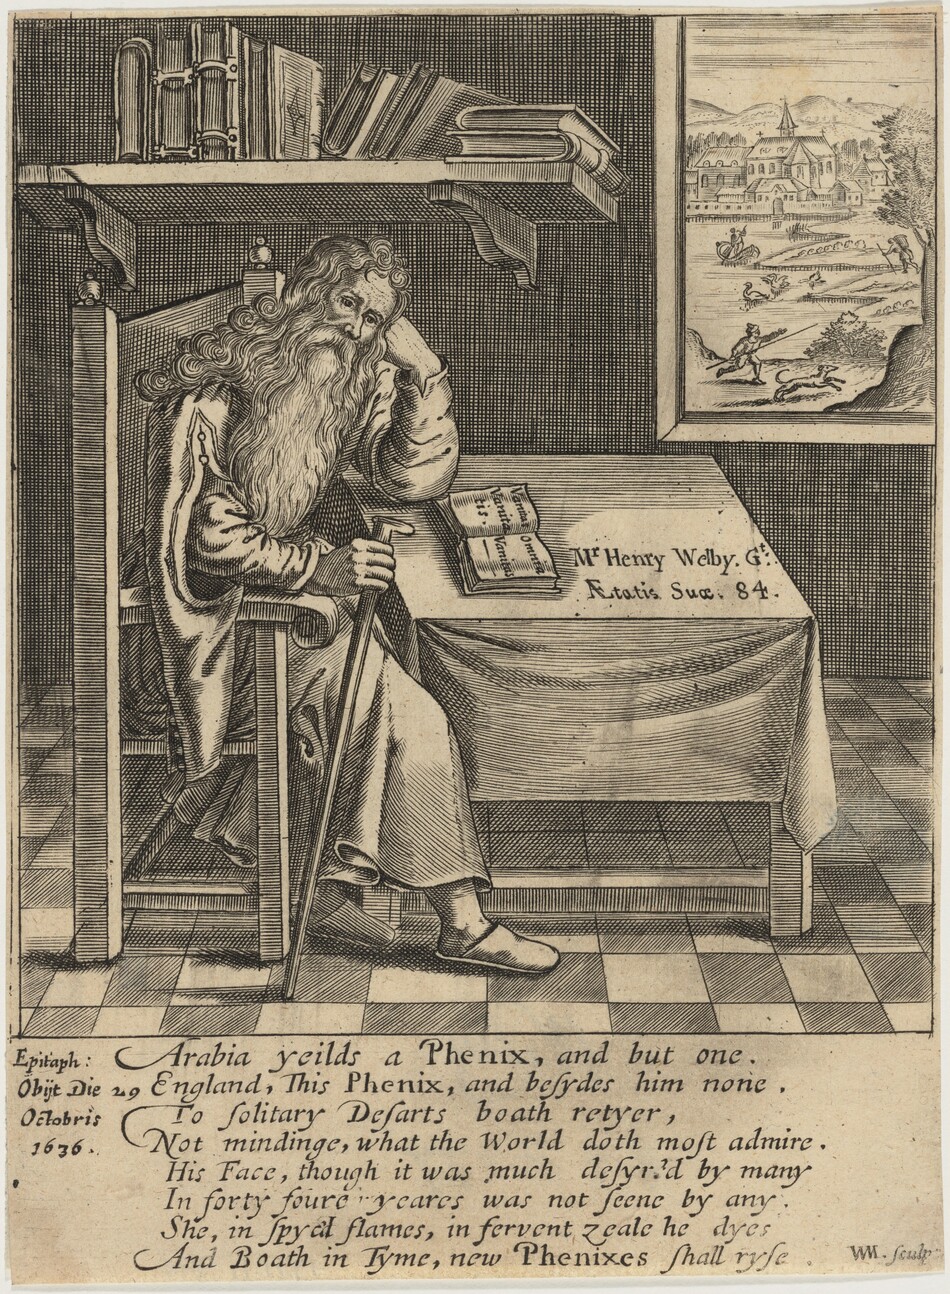 Vanitas
Vanita
tis.
Omnia
Vanitas
Mr Henry Welby. Gt.
Ætatis Suæ. 84.
Epitaph:
Obijt Die 29
Octobris
1636.
Arabia yeilds a Phenix, and but one.
England, This Phenix, and besydes him none.
To solitary Desarts boath retyer,
Not mindinge, what the World doth most admire.
His Face, though it was much desyr'd by many
In forty foure yeares was not seene by any.
She, in spyc'd flames, in fervent zeale he dyes
And Boath in Tyme, new Phenixes shall ryse.
WM. sculp